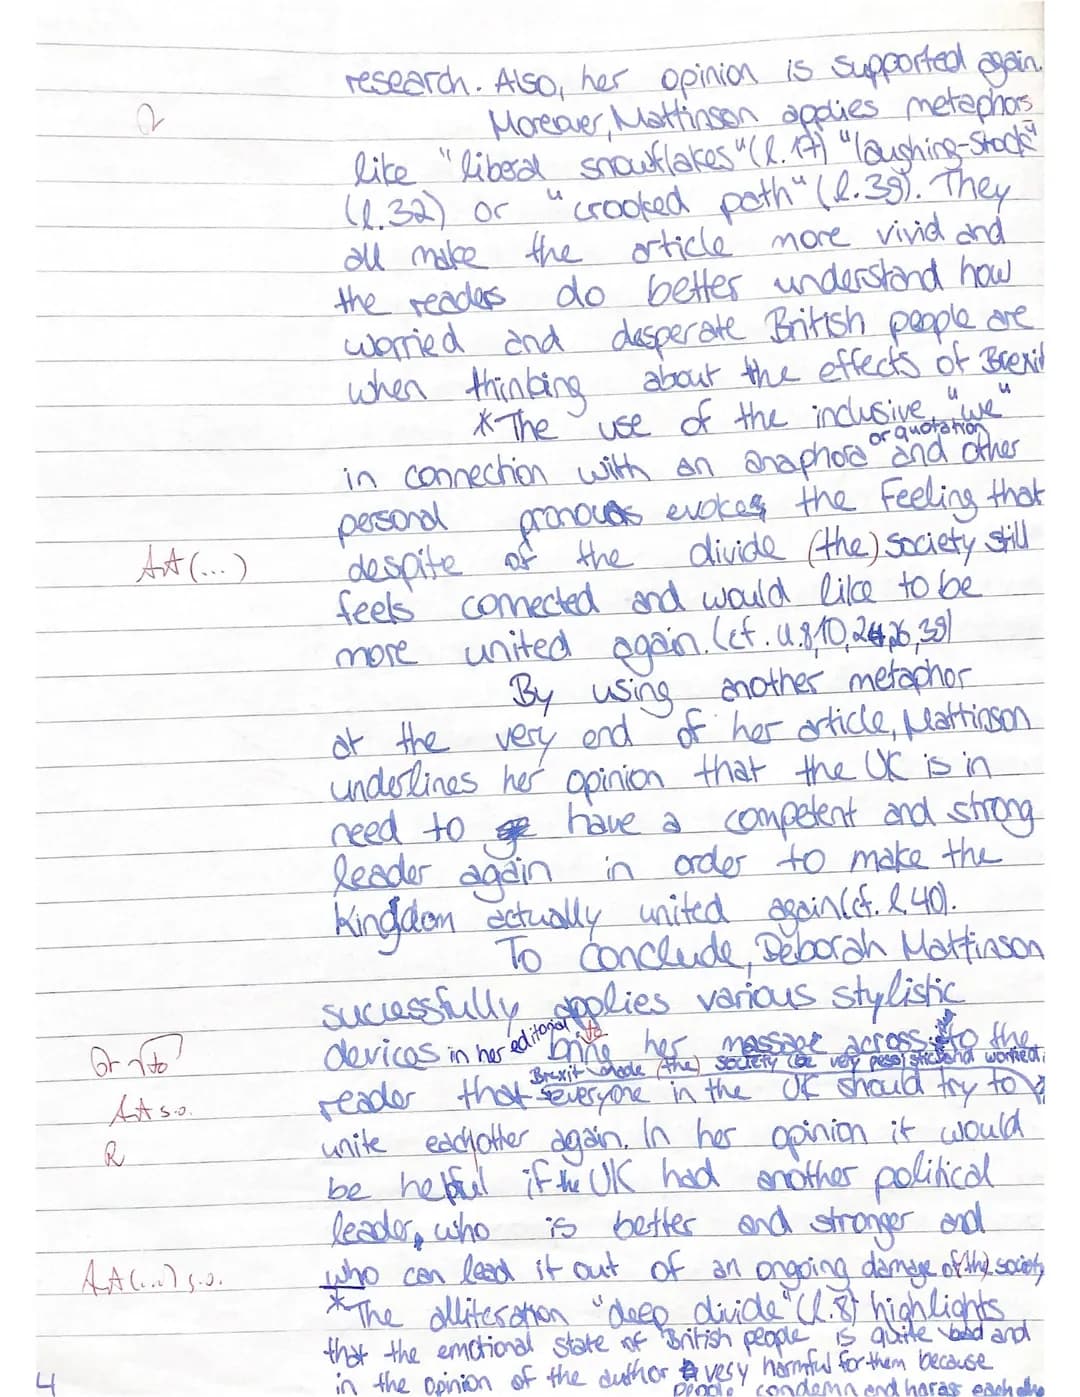 research. Also, her opinion is supported again.
R
Moreover, Mattinson applies metaphors
like "liberal snowflakes" (l. 17) "laughing-stock"
(l.32) or "crooked path" (l.39). They
all make the article more vivid and
the readers do better understand how
worried and desperate British people are
when thinking about the effects of Brexit
*The use of the inclusive "we"
or quotation
in connection with an anaphora and other
personal pronouns evokes the feeling that
AA (...)
despite of the divide (the) society still
feels connected and would like to be
more united again. (cf. ll. 8, 10, 24, 26, 39)
By using another metaphor
at the very end of her article, Mattinson
underlines her opinion that the UK is in
need to have a competent and strong
leader again in order to make the
Kingdom actually united again (cf. l. 40).
To conclude, Deborah Mattinson
sucessfully applies various stylistic
Gr to
devices in her editorial to bring her massage across to the
Brexit made (the) society be very pessisticand worried.
AA s.o.
reader that everyone in the UK should try to
R
unite eachother again. In her opinion it would
be helpful if the UK had another political
leader, who is better and stronger and
AA (...) s.o.
who can lead it out of an ongoing damage of (the) society
*The alliteration "deep divide" (l.8) highlights
that the emotional state of British people is quite bad and
in the opinion of the author very harmful for them because
people condemn and harass each
4